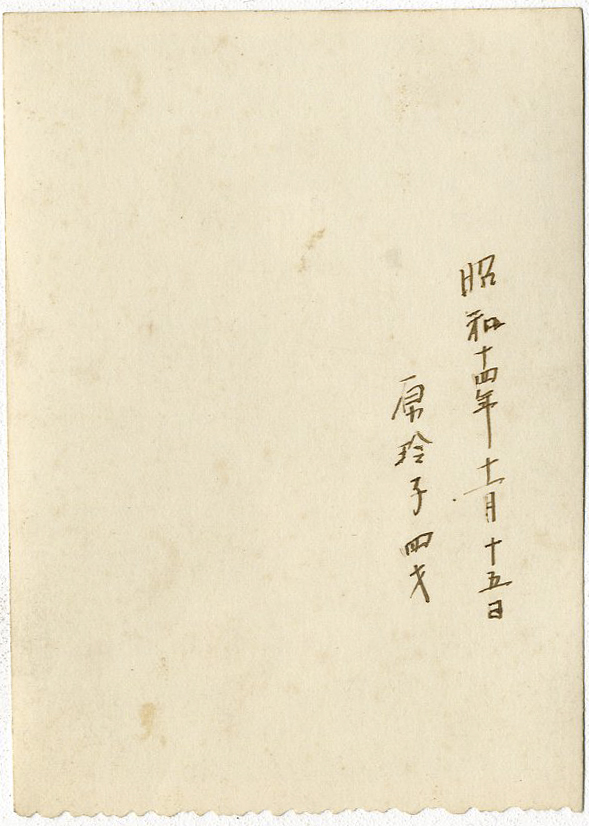 昭和十四年十一月十五日
原玲子四才